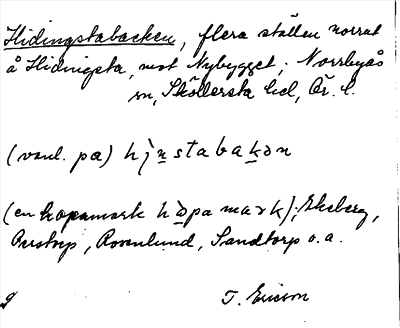 Hidingstabacken, flera ställen norrut
å Hidingsta, mot Nybygget; Norrbyås
sn, Sköllersta hd, Ör. l.
(vanl. pa) hịnstabakən
(en hopamark hòpamark); Ekeberg,
Perstorp, Rosenlund, Sandtorp o. a.
T. Ericson